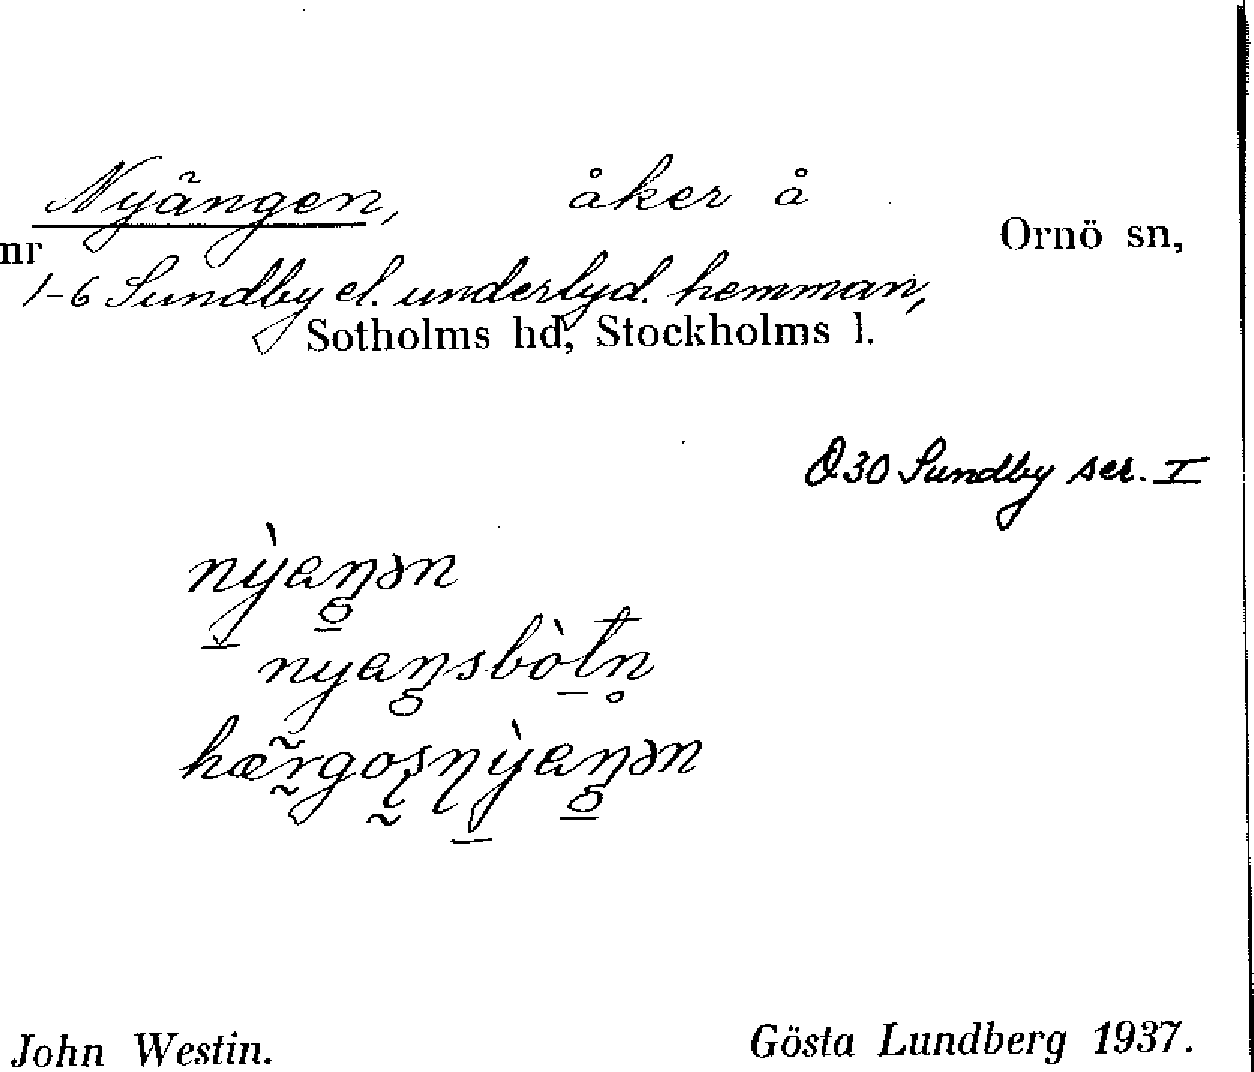 Nyängen, åker å
Ornö sn,
nr
1-6 Sundby el. underlyd. hemman,
Sotholms hd, Stockholms l.
Ö30 Sundby ser. I
nỳaŋən
nyaŋsbòtn̥
hærgoʂɳỳaŋən
John Westin. Gösta Lundberg 1937.